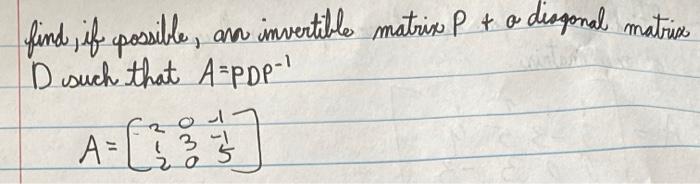 find, if possible, an invertible matrix P + a diagonal matrix
D such that A=PDP⁻¹
A = [2 0 -1
1 3 -1
2 0 5]